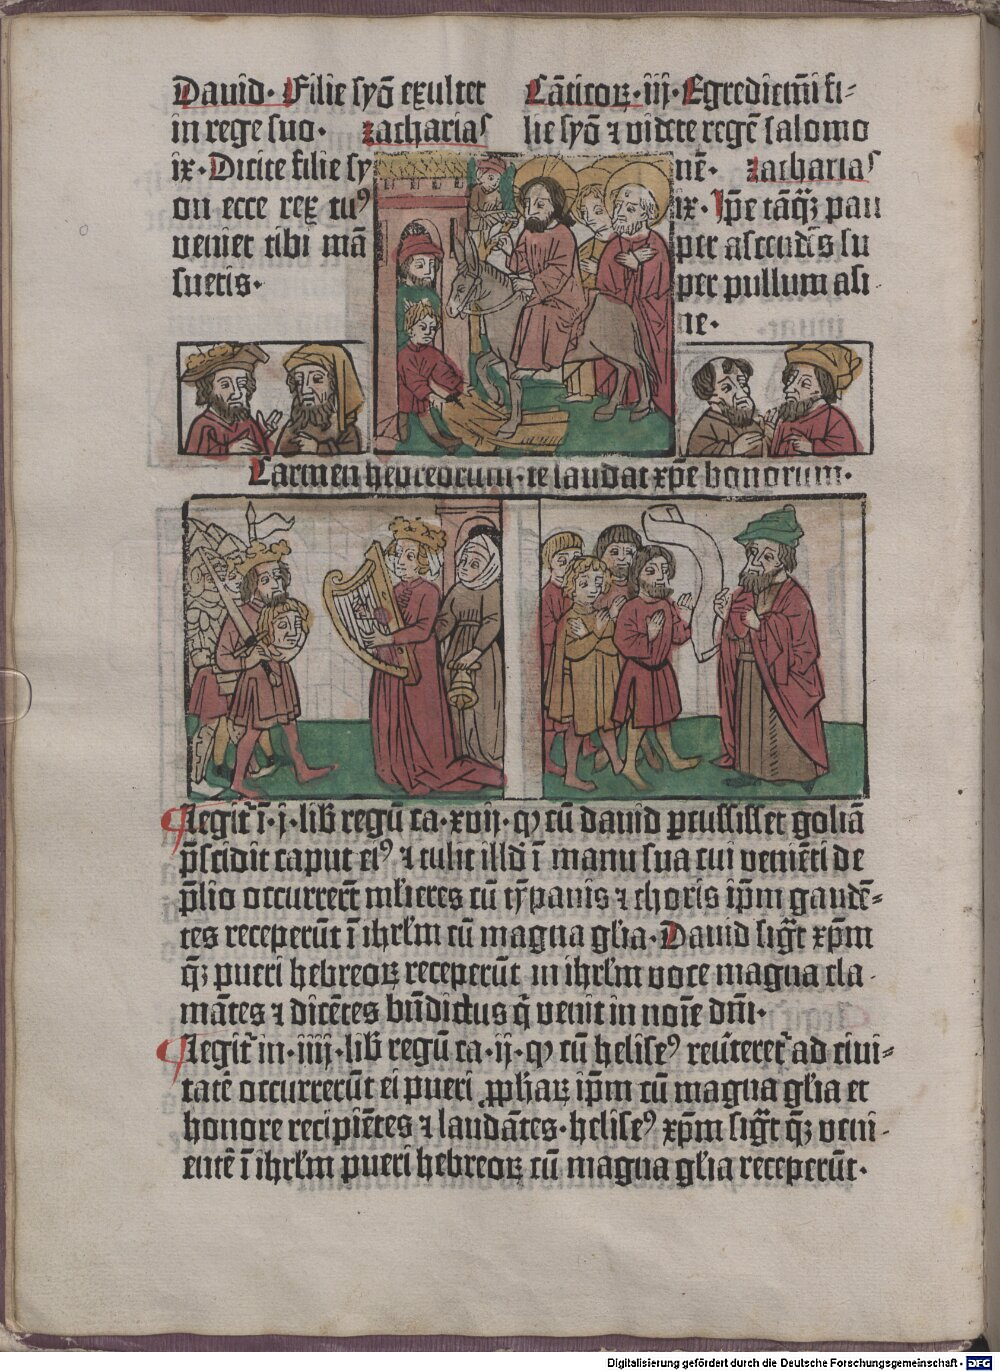 Dauid· Filie syō exultet
in rege suo· zacharias
ix· Dicite filie sy
on ecce rex tuꝰ
veniet tibi mā
suetis·
Cāticoꝝ· iij· Egrediemī fi-
lie syō ⁊ videte regē salomo
nē· zacharias
ix· Ip̄e tāqꝫ pau
per ascendēs su
per pullum asi
ne·
Carmen hebreorum· te laudat xp̄e bonorum·
Legit᷑ ī· j· lib̄ regū ca· xvij· ꝙ cū dauid ꝑcussisset goliā
p̄scidit caput eiꝰ ⁊ tulit illd̄ ī manu sua cui veniēti de
p̄lio occurrer̄t ml̄ieres cū tȳpanis ⁊ choris ip̄m gaudē-
tes receperūt ī ihrl̄m cū magna gl̄ia· Dauid sigt̄ xp̄m
qꝫ̄ pueri hebreoꝝ receperūt in ihrl̄m voce magna cla-
mātes ⁊ dicētes bn̄dictus q̄ venit in noīe dn̄i·
Legit᷑ in· iiij· lib̄ regū ca· ij· ꝙ cū heliseꝰ reūteret᷑ ad ciui-
tatē occurrerūt ei pueri ꝓphaꝝ ip̄m cū magna gl̄ia et
honore recipiētes ⁊ laudātes· heliseꝰ xp̄m sigt̄ qꝫ̄ veni-
entē ī ihrl̄m pueri hebreoꝝ cū magna gl̄ia receperūt·
Digitalisierung gefördert durch die Deutsche Forschungsgemeinschaft - DFG